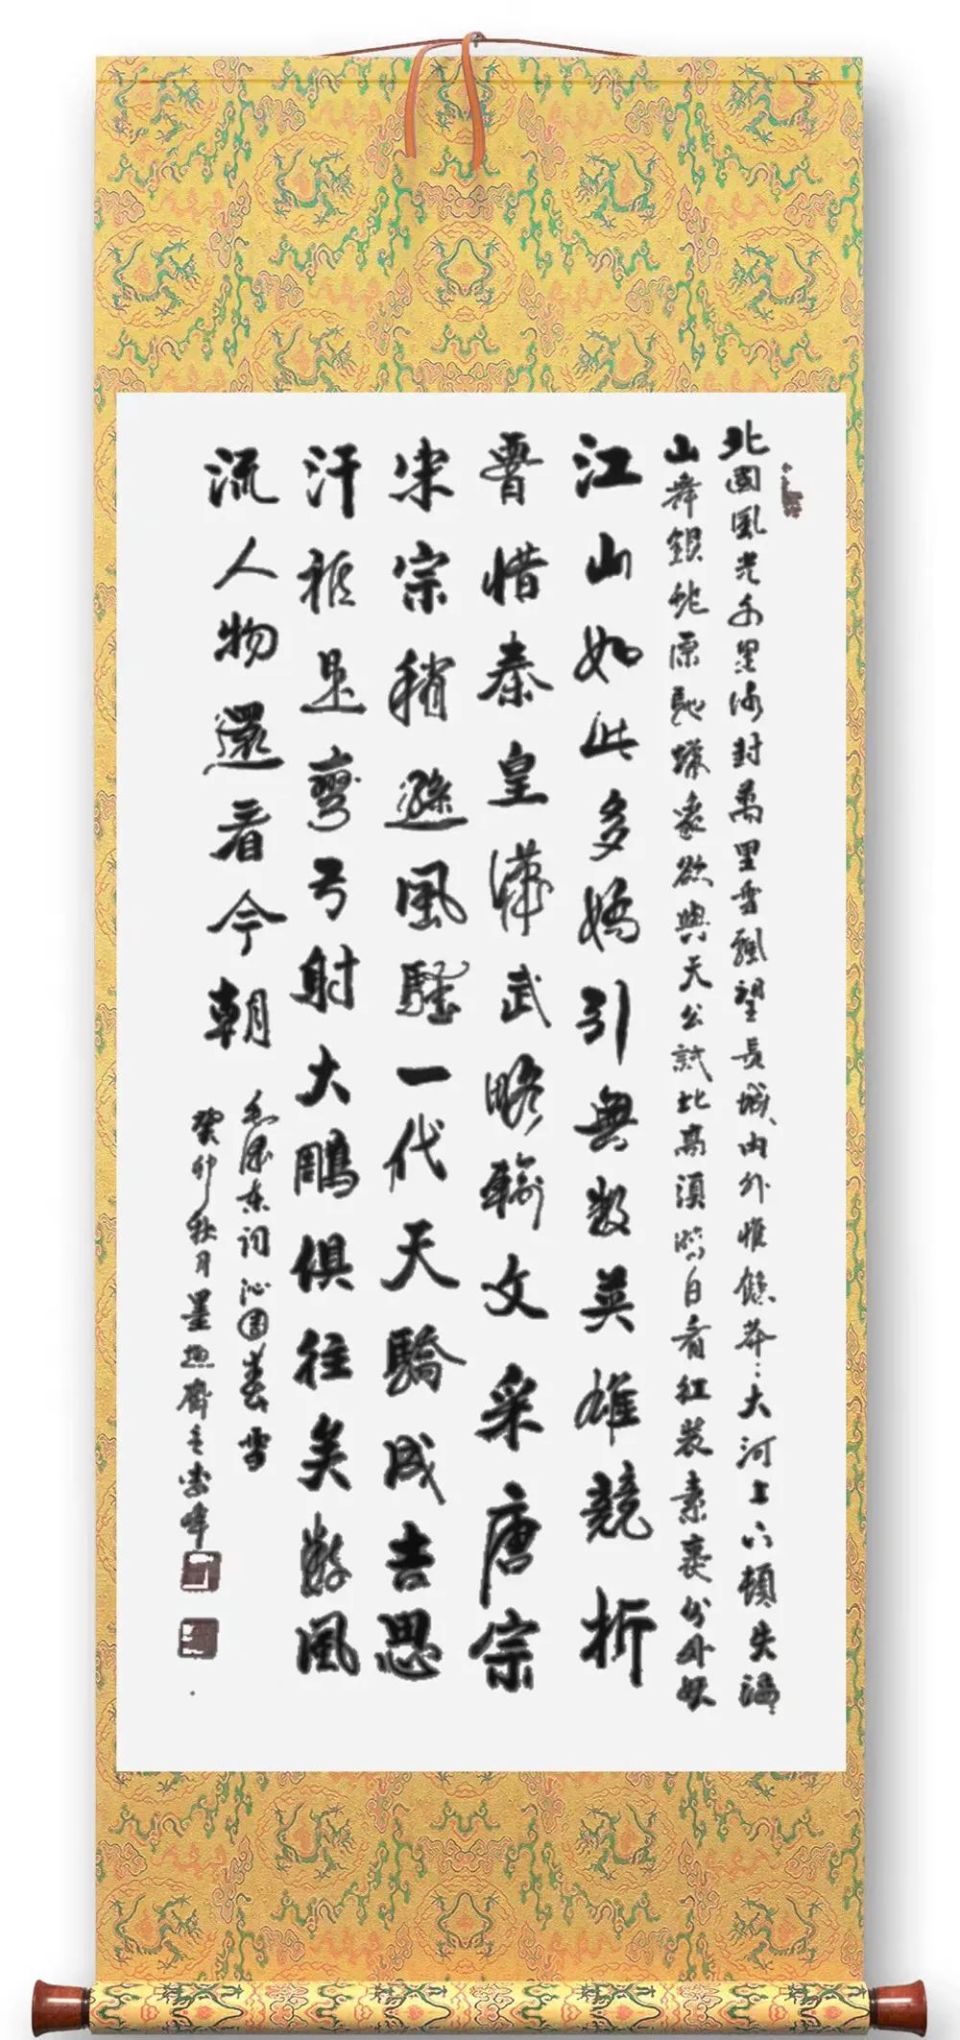 北國風光千里冰封萬里雪飄望長城内外惟餘莽〻大河上下頓失滔〻
山舞銀蛇原馳蠟象欲與天公試比高須晴日看紅裝素裹分外妖
江山如此多嬌引無數英雄競折
腰惜秦皇漢武略輸文采唐宗
宋宗稍遜風騷一代天驕成吉思
汗祇是彎弓射大鵰俱往矣數風
流人物還看今朝
毛澤東詞沁園春雪
癸卯秋月墨齋主